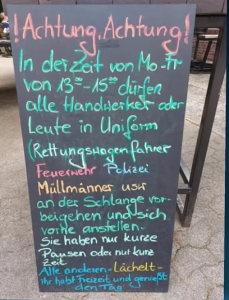 !Achtung, Achtung!
In der Zeit von Mo-Fr
von 13⁰⁰-15⁰⁰ dürfen
alle Handwerker oder
Leute in Uniform
(Rettungswagenfahrer
Feuerwehr Polizei
Müllmänner usw
an der Schlange vor-
beigehen und sich
vorne anstellen.
Sie haben nur kurze
Pausen oder nur kurz
Zeit.
Alle anderen - Lächelt -
Ihr habt Freizeit und genießt
den Tag